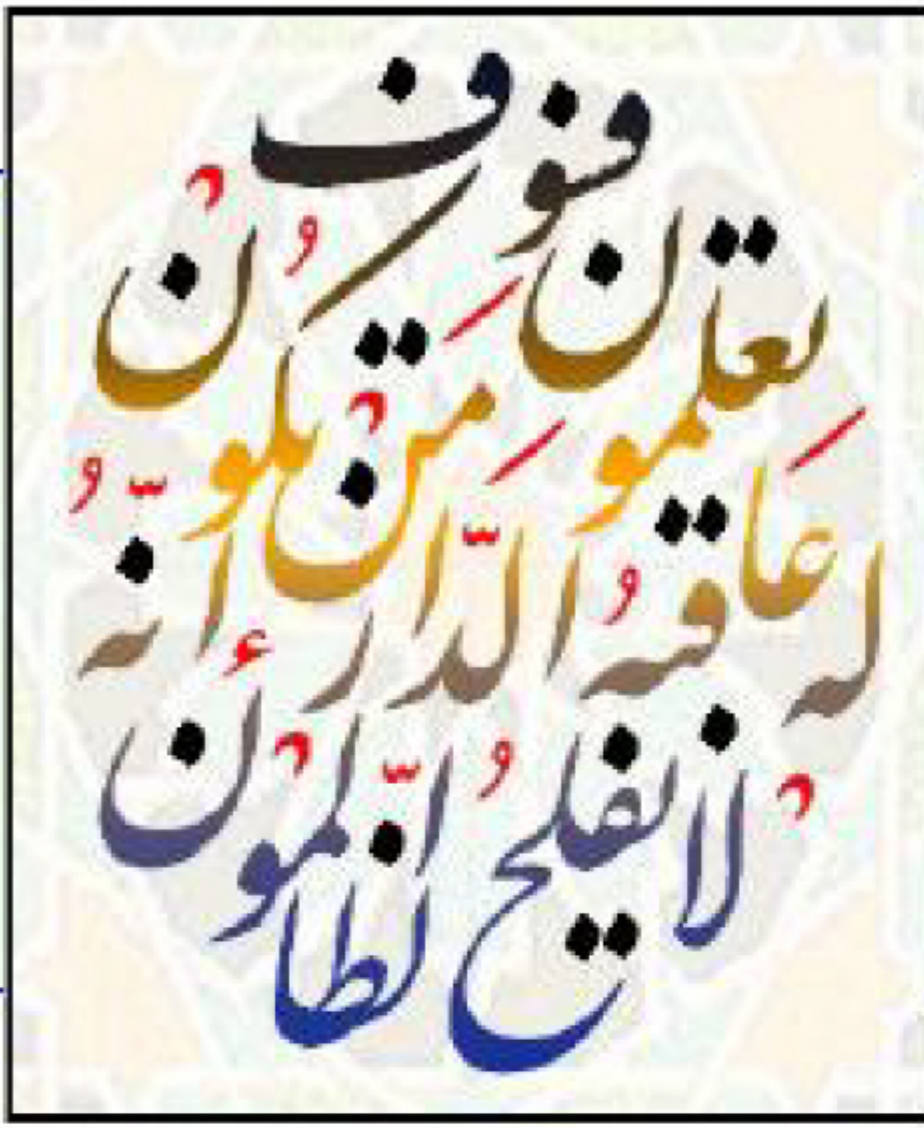 فسوف
تعلمون من تكون
له عاقبة الدّار انّه
لا يفلح الظّالمون